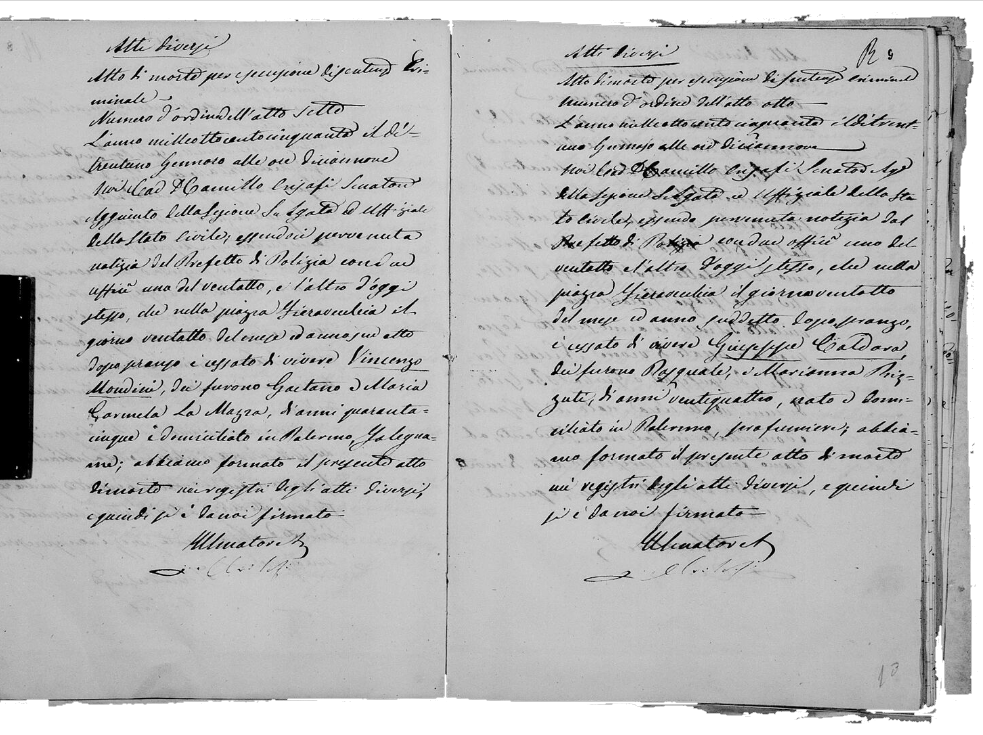 Atti diversi
Atto di morte per esecuzione di sentenza Cri-
minale
Numero d'ordine dell'atto sette
L'anno milleottocentocinquanta il dì
trentuno Gennaro alle ore diciannove
Noi Cav D Camillo Senatore
Aggiunto della Sezione ed Uffiziale
dello Stato Civile, essendoci pervenuta
notizia del Prefetto di Polizia con due
uffici uno del ventotto, e l'altro d'oggi
stesso, che nella piazza Fieravecchia il
giorno ventotto del mese ed anno
dopo pranzo è cessato di vivere Vincenzo
Mondini, dei furono Gaetano e Maria
Carmela La Mazza, d'anni quaranta=
cinque è domiciliato in Palermo, Falegna=
me; abbiamo formato il presente atto
di morte nei registri degli atti diversi,
e quindi si è da noi firmato
Il Senatore
Atti diversi
8
Atto di morte per esecuzione di sentenza Criminale
Numero d'ordine dell'atto otto
L'anno milleottocento cinquanta il dì trent-
uno Gennaro alle ore diciannove
Noi Cav D Camillo Senatore Ag
della Sezione ed Uffiziale dello Sta
to Civile, essendo pervenuta notizia dal
Prefetto di Polizia con due uffici uno del
ventotto e l'altro d'oggi stesso, che nella
piazza Fieravecchia il giorno ventotto
del mese ed anno suddetto dopo pranzo,
è cessato di vivere Giuseppe Caldara,
dei furono Pasquale, e Marianna Riz-
zuti, d'anni ventiquattro, nato e domi-
ciliato in Palermo, profumiere; abbia-
mo formato il presente atto di morte
nei registri degli atti diversi, e quindi
si è da noi firmato
Il Senatore
13